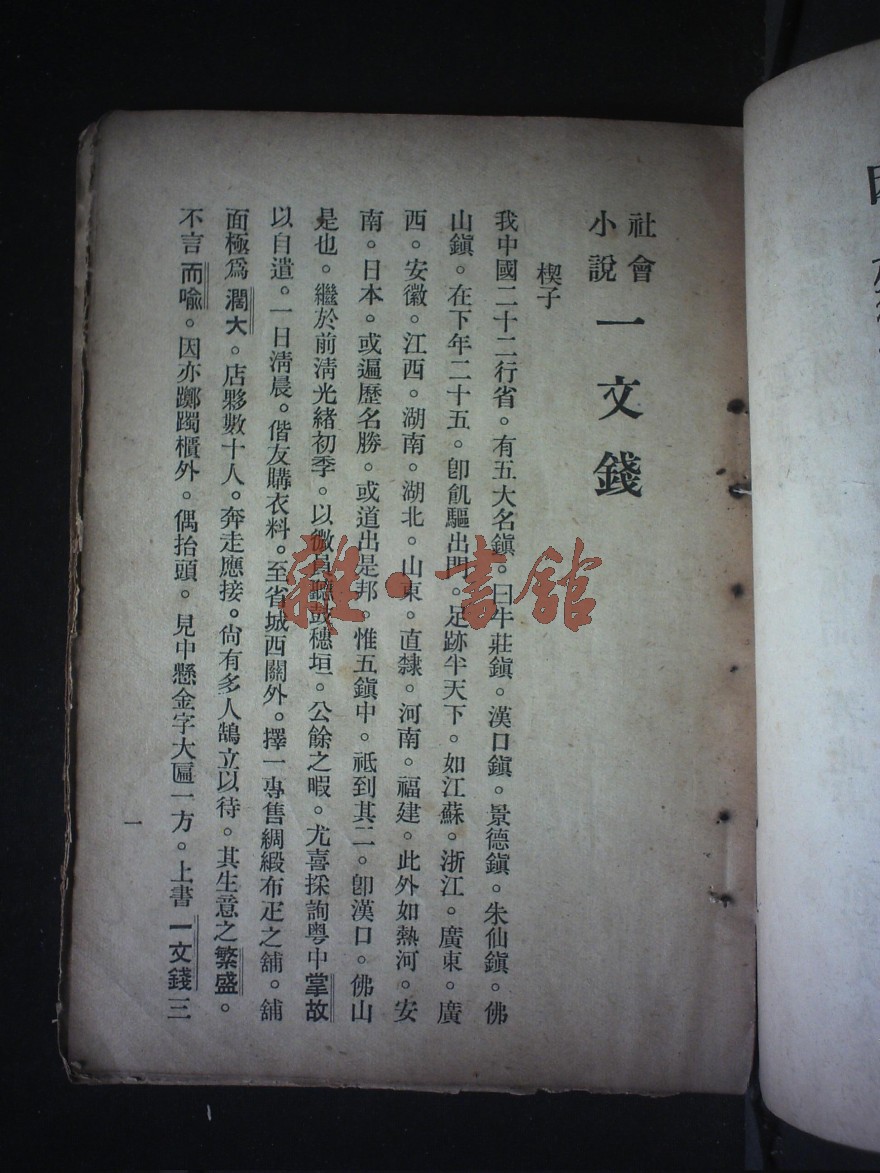 社會小說 一文錢
楔子
我中國二十二行省。有五大名鎭。曰牛莊鎭。漢口鎭。景德鎭。朱仙鎭。佛
山鎭。在下年二十五。卽飢驅出門。足跡半天下。如江蘇。浙江。廣東。廣
西。安徽。江西。湖南。湖北。山東。直隸。河南。福建。此外如熱河。安
南。日本。或遍歷名勝。或道出是邦。惟五鎭中。祇到其二。卽漢口。佛山
是也。繼於前淸光緖初季。以微員聽鼓穗垣。公餘之暇。尤喜採詢粤中掌故
以自遣。一日淸晨。偕友購衣料。至省城西關外。擇一專售綢緞布疋之舖。舖
面極爲濶大。店夥數十人。奔走應接。尙有多人鵠立以待。其生意之繁盛。
不言而喩。因亦躑躅櫃外。偶抬頭。見中懸金字大匾一方。上書一文錢三
一
雜·書館